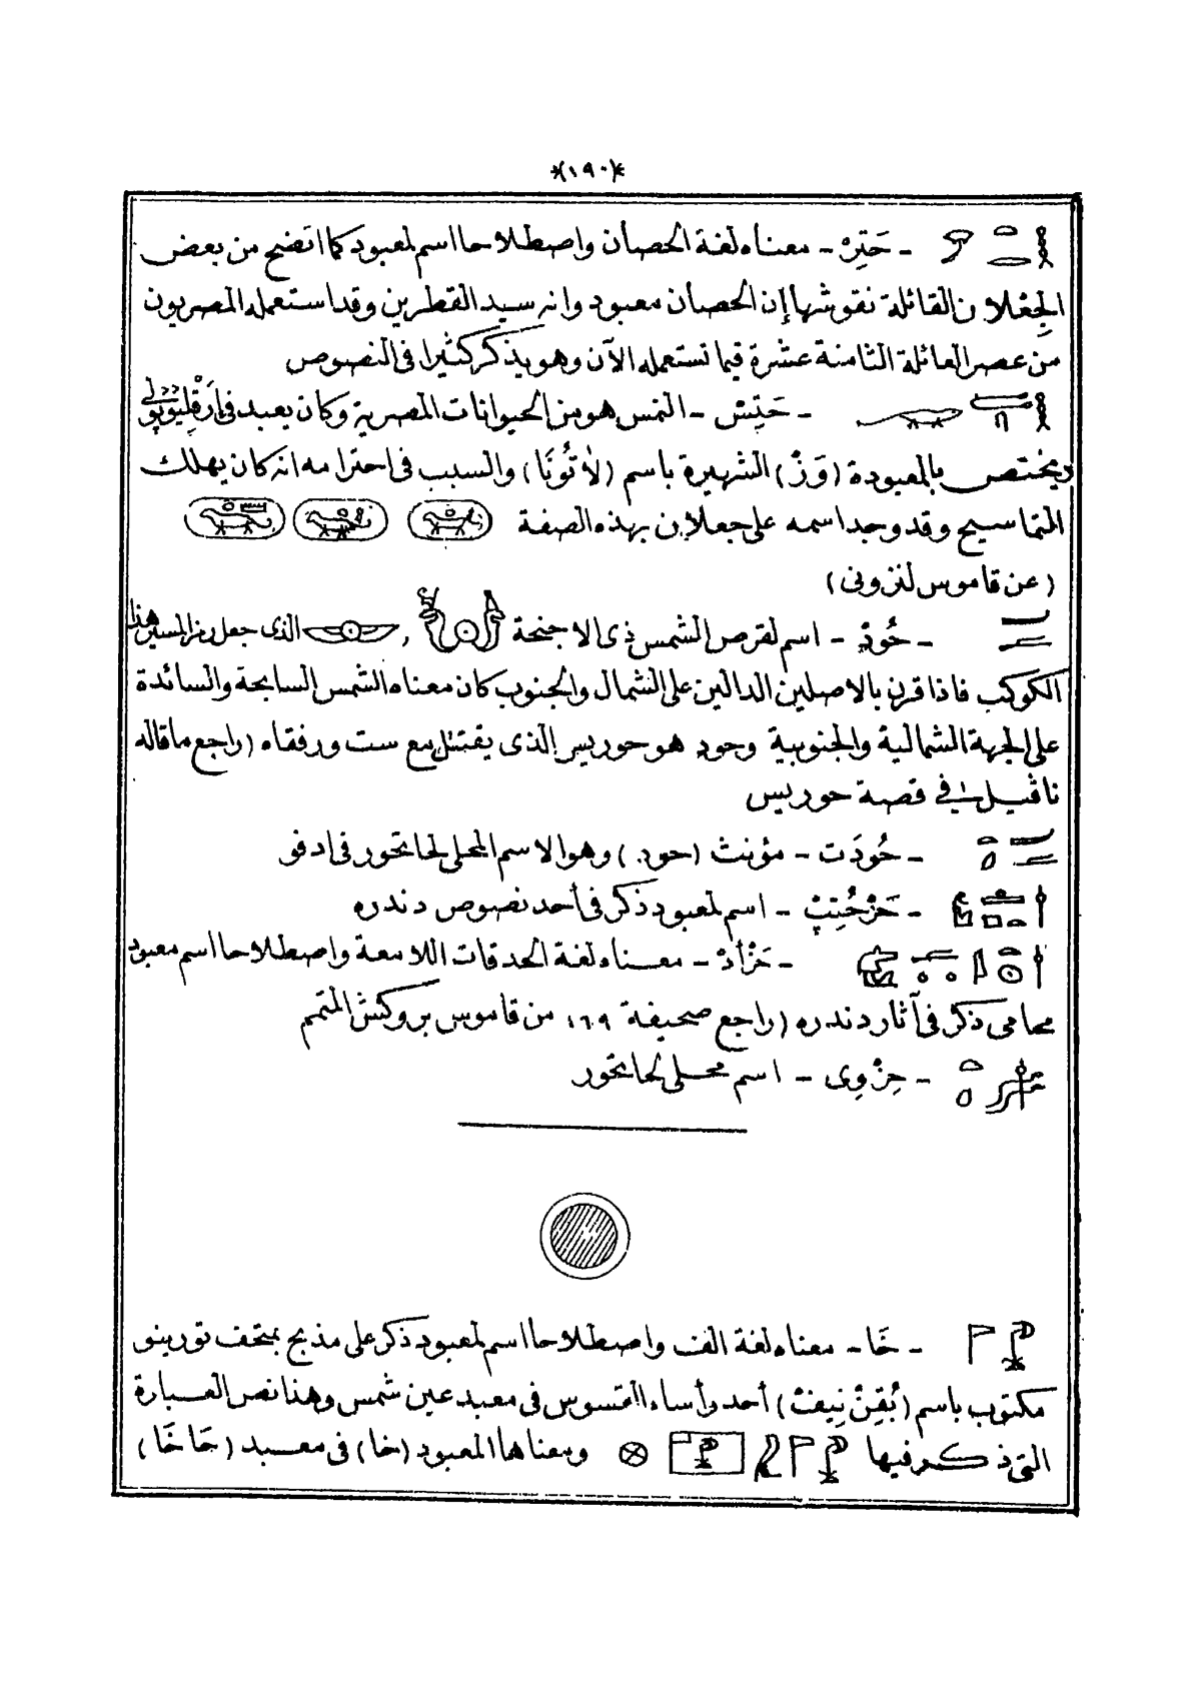 *(١٩٠)*
- حَتِرْ - معناه لغة الحصان واصطلاحا اسم لمعبود كما اتضح من بعض
الجِعْلان القائلة نقوشها إن الحصان معبود وانه سيد القطرين وقد استعمله المصريون
من عصر العائلة الثامنة عشرة فيما تستعمله الآن وهو يذكر كثيرا في النصوص
- حَتِيْش - النمس هو من الحيوانات المصرية وكان يعبد في
ويختص بالمعبودة (وَزْ) الشهيرة باسم (لاٰتُونَا) والسبب في احترامه انه كان يهلك
التماسيح وقد وجد اسمه على جعلان بهذه الصفة
(عن قاموس لنزونى)
- حُودْ - اسم لقرص الشمس ذى الاجنحة , الذى جعل رمز المسير هذا
الكوكب فاذا قرن بالاصلين الدالين على الشمال والجنوب كان معناه الشمس السابحة والسائدة
على الجهة الشمالية والجنوبية وحود هو حوريس الذى يقتتل مع ست ورفقاه (راجع ما قاله
ناڤيل في قصة حوريس
- حُودَت - مؤنث (حود) وهو الاسم المحلى لحاتحور في ادفو
- حَزْحُتِپْ - اسم لمعبود ذكر في أحد نصوص دندره
- حَزْأَدْ - معناه لغة الحدقات اللامعة واصطلاحا اسم معبود
محامى ذكر في آثار دندره (راجع صحيفة من قاموس بروكش المتمم
- حِزْوِى - اسم محلى لحاتحور
- خَا - معناه لغة الف واصطلاحا اسم لمعبود ذكر على مذبح بمتحف تورينو
مكتوب باسم أحد رأساء القسوس في معبد عين شمس وهذا نص العبارة
التى ذكر فيها ومعناها المعبود (خا) في معبد (حَاخَا)